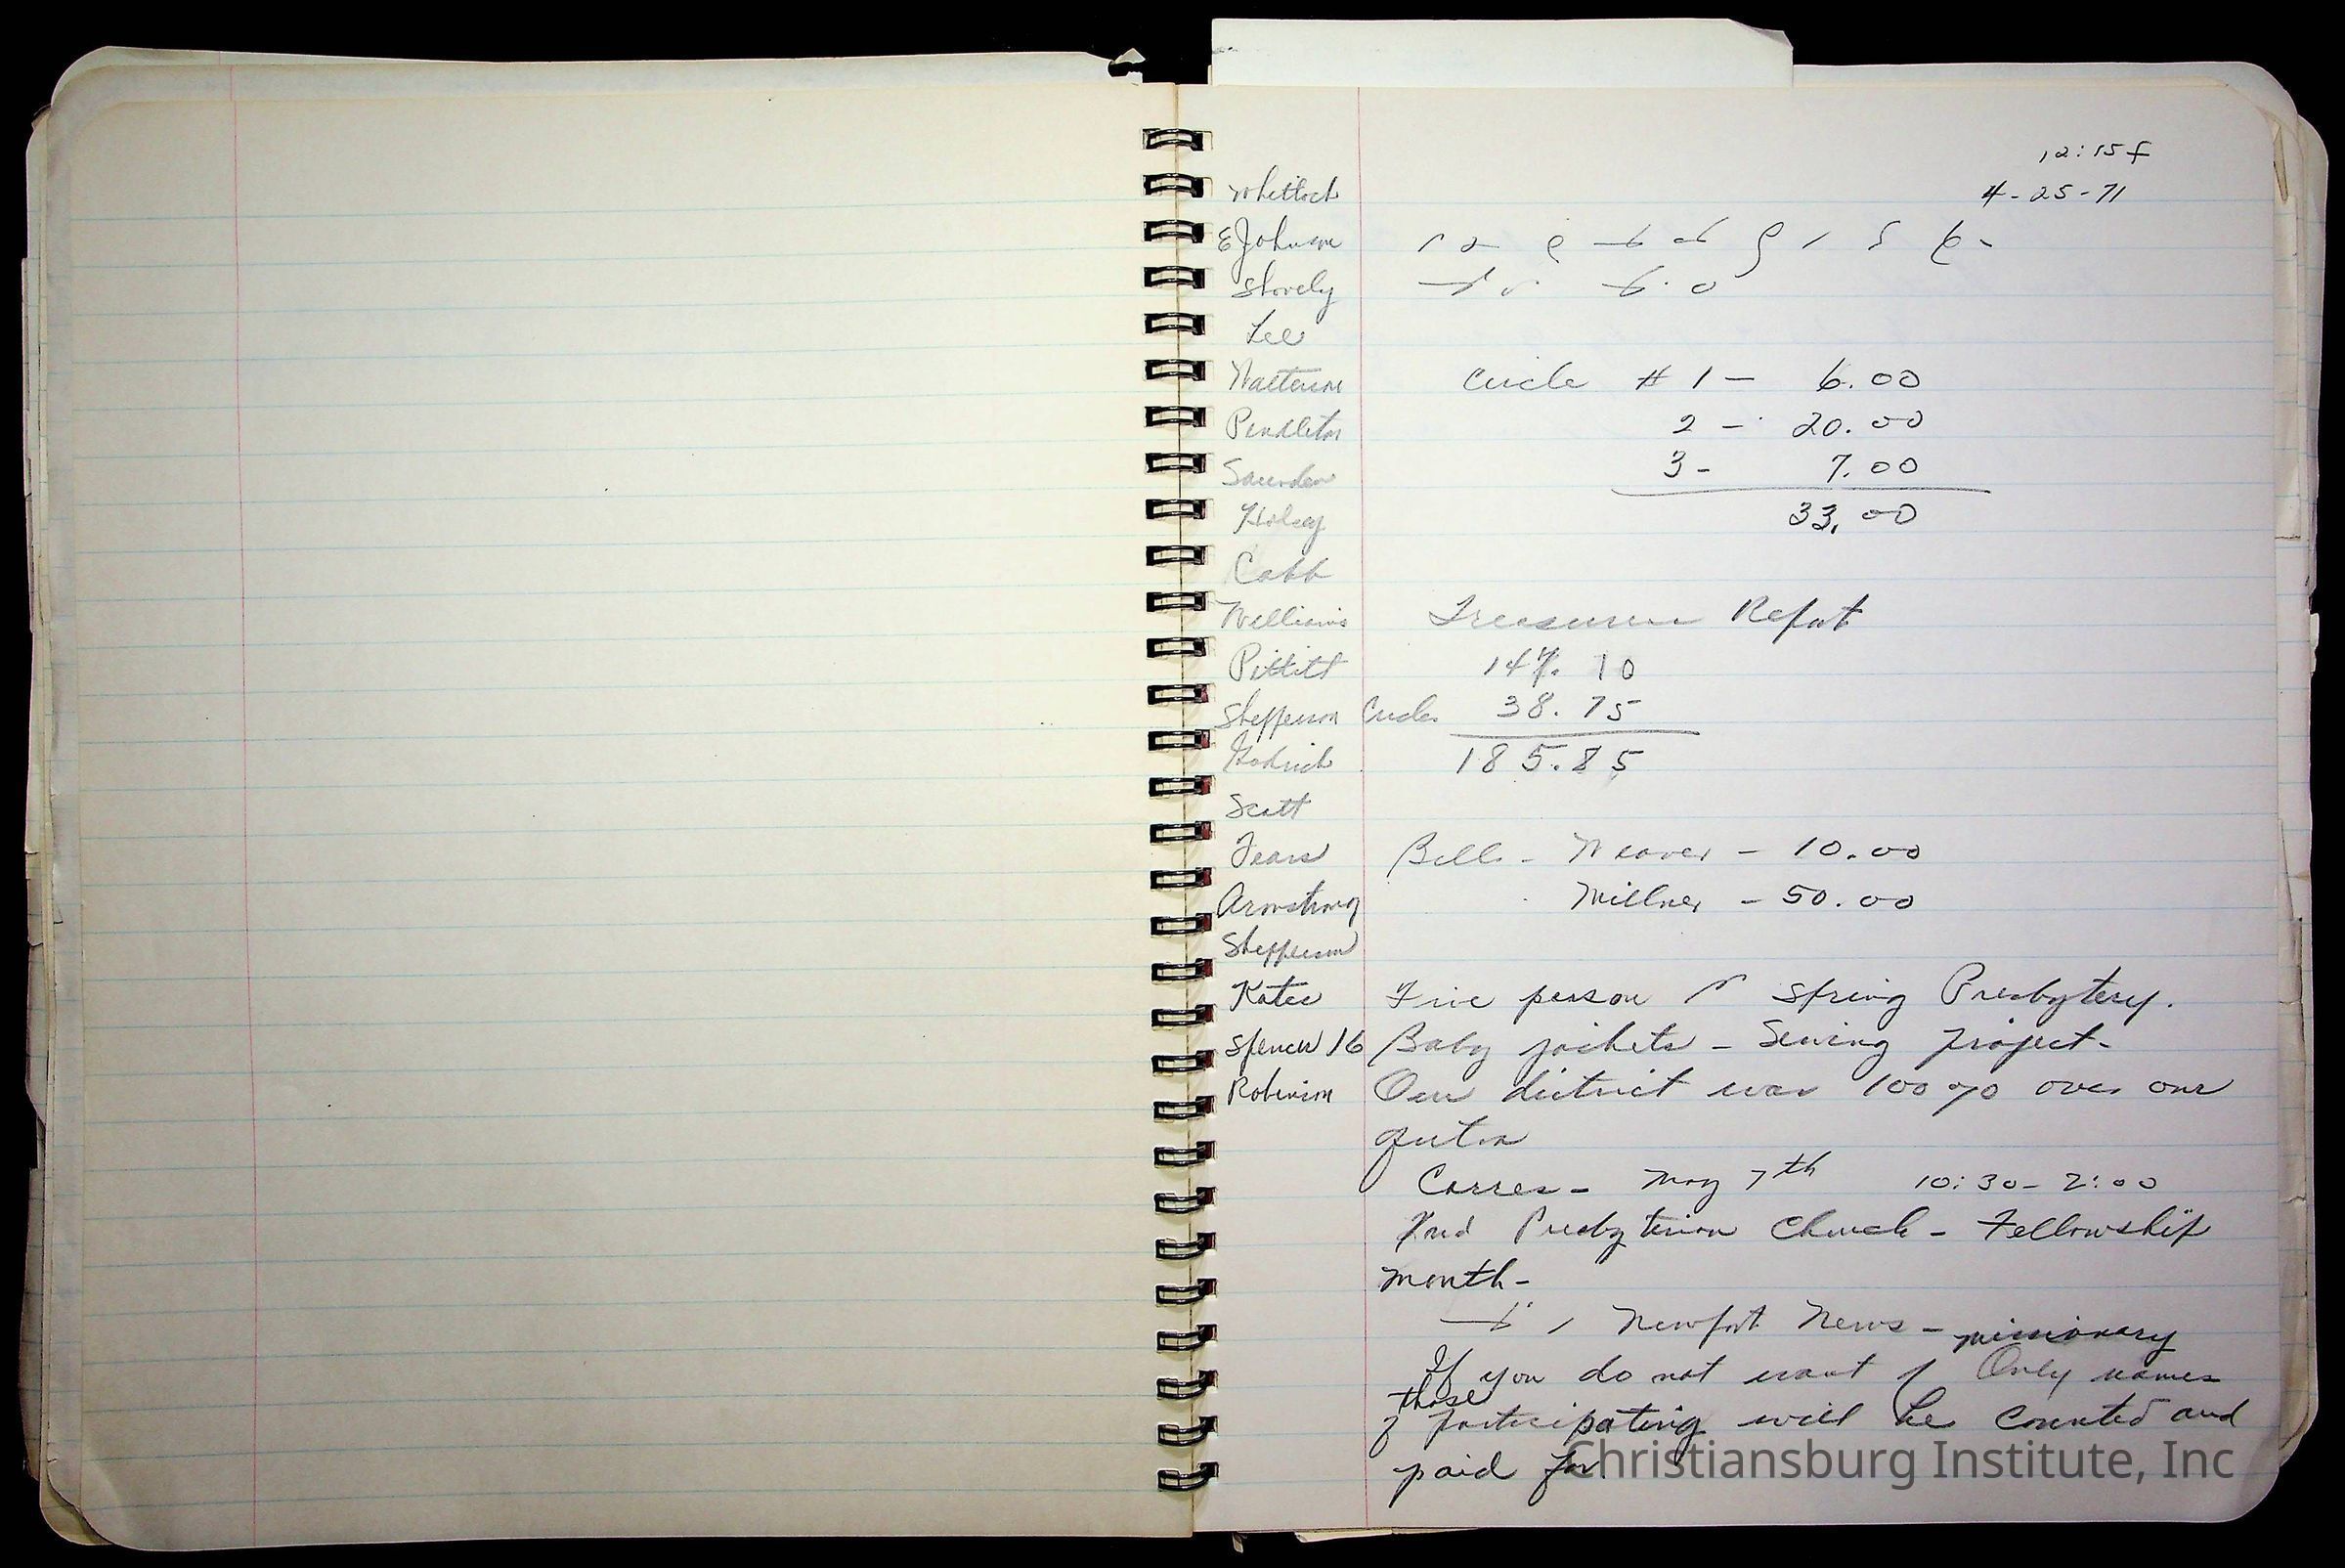 12:15
4-25-71
Whitlock
E Johnson
Shively
Lee
Circle # 1 - 6.00
Pendleton 2 - 20.00
Saunders 3 - 7.00
33.00
Cobb
Williams Treasurer Report
Pettitt 147.10
Shepperson Circle 38.75
185.85
Scott
Fears Bills - Weaver - 10.00
Armstrong Millner - 50.00
Shepperson
Kates Five person Spring Presbytery.
Spencer 16 Baby jackets - Sewing project -
Robinson Our district was 100% over our
Corres - May 7th 10:30 - 2:00
2nd Presbyterian Church - Fellowship
month -
Newport News - missionary
If you do not want Only names
those
of participating will be counted and
paid for.
Christiansburg Institute, Inc